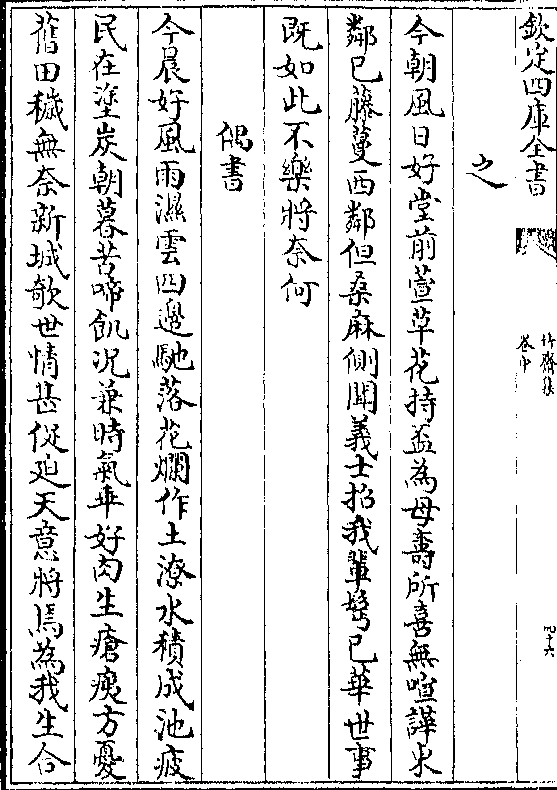 欽定四庫全書
竹齋集
卷中
四十六
之
今朝風日好堂前萱草花持盃為母壽所喜無喧譁東
鄰已藤蔓西鄰但桑麻側聞義士招我輩鬂已華世事
既如此不樂將奈何
偶書
今晨好風雨濕雲四邊馳落花爛作土潦水積成池疲
民在塗炭朝暮苦啼飢況兼時氣乖好肉生瘡痍方憂
舊田穢無奈新城欹世情甚促廹天意將焉為我生合